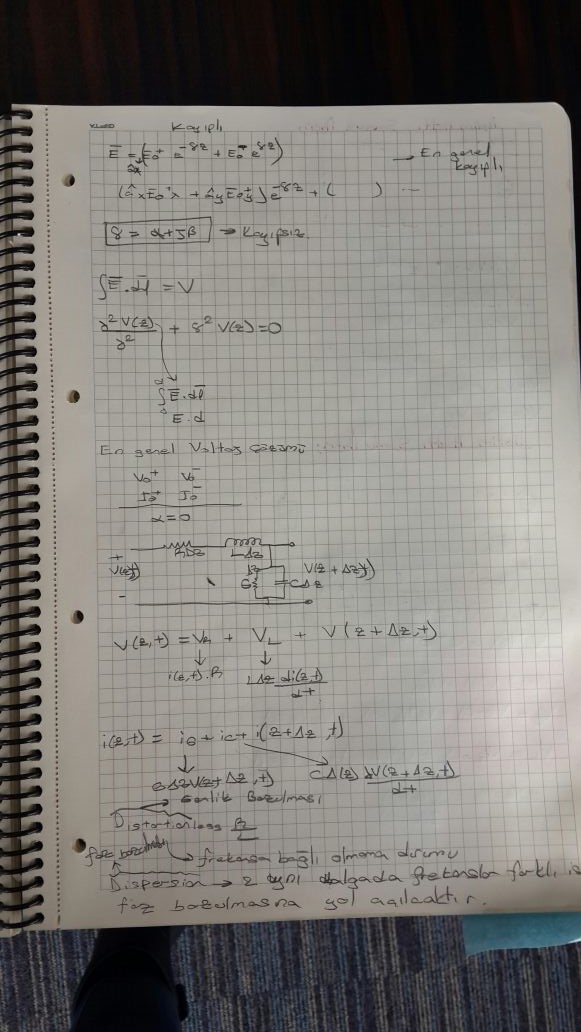 Kayıplı
Ē = (E₀⁺ e^-γz + E₀⁻ e^γz) → En genel kayıplı
âx
(âxĒ₀⁺x + âyĒ₀⁺y)e^-γz + ( ) ...
γ = α+jβ → Kayıpsız.
∫Ē.dl̄ = V
∂²V(z)/∂² + γ² V(z)=0
∫Ē.dl̄
E.d
En genel Voltaj çözümü
V₀⁺ V₀⁻
I₀⁺ I₀⁻
α=0
RΔz LΔz
+ V(z,t) - G CΔz V(z + Δz,t)
V(z,t) = V_R + V_L + V(z+Δz,t)
i(z,t).R LΔz di(z,t)/dt
i(z,t) = i_G + i_C + i(z+Δz,t)
GΔzV(z+Δz,t) CΔ(z) dV(z+Δz,t)/dt
→ Genlik Bozulması
Distortionless R/L
faz bozulması → frekansa bağlı olmama durumu
Dispersion → 2 aynı dalgada frekanslar farklı is
faz bozulmasına yol açılacaktır.